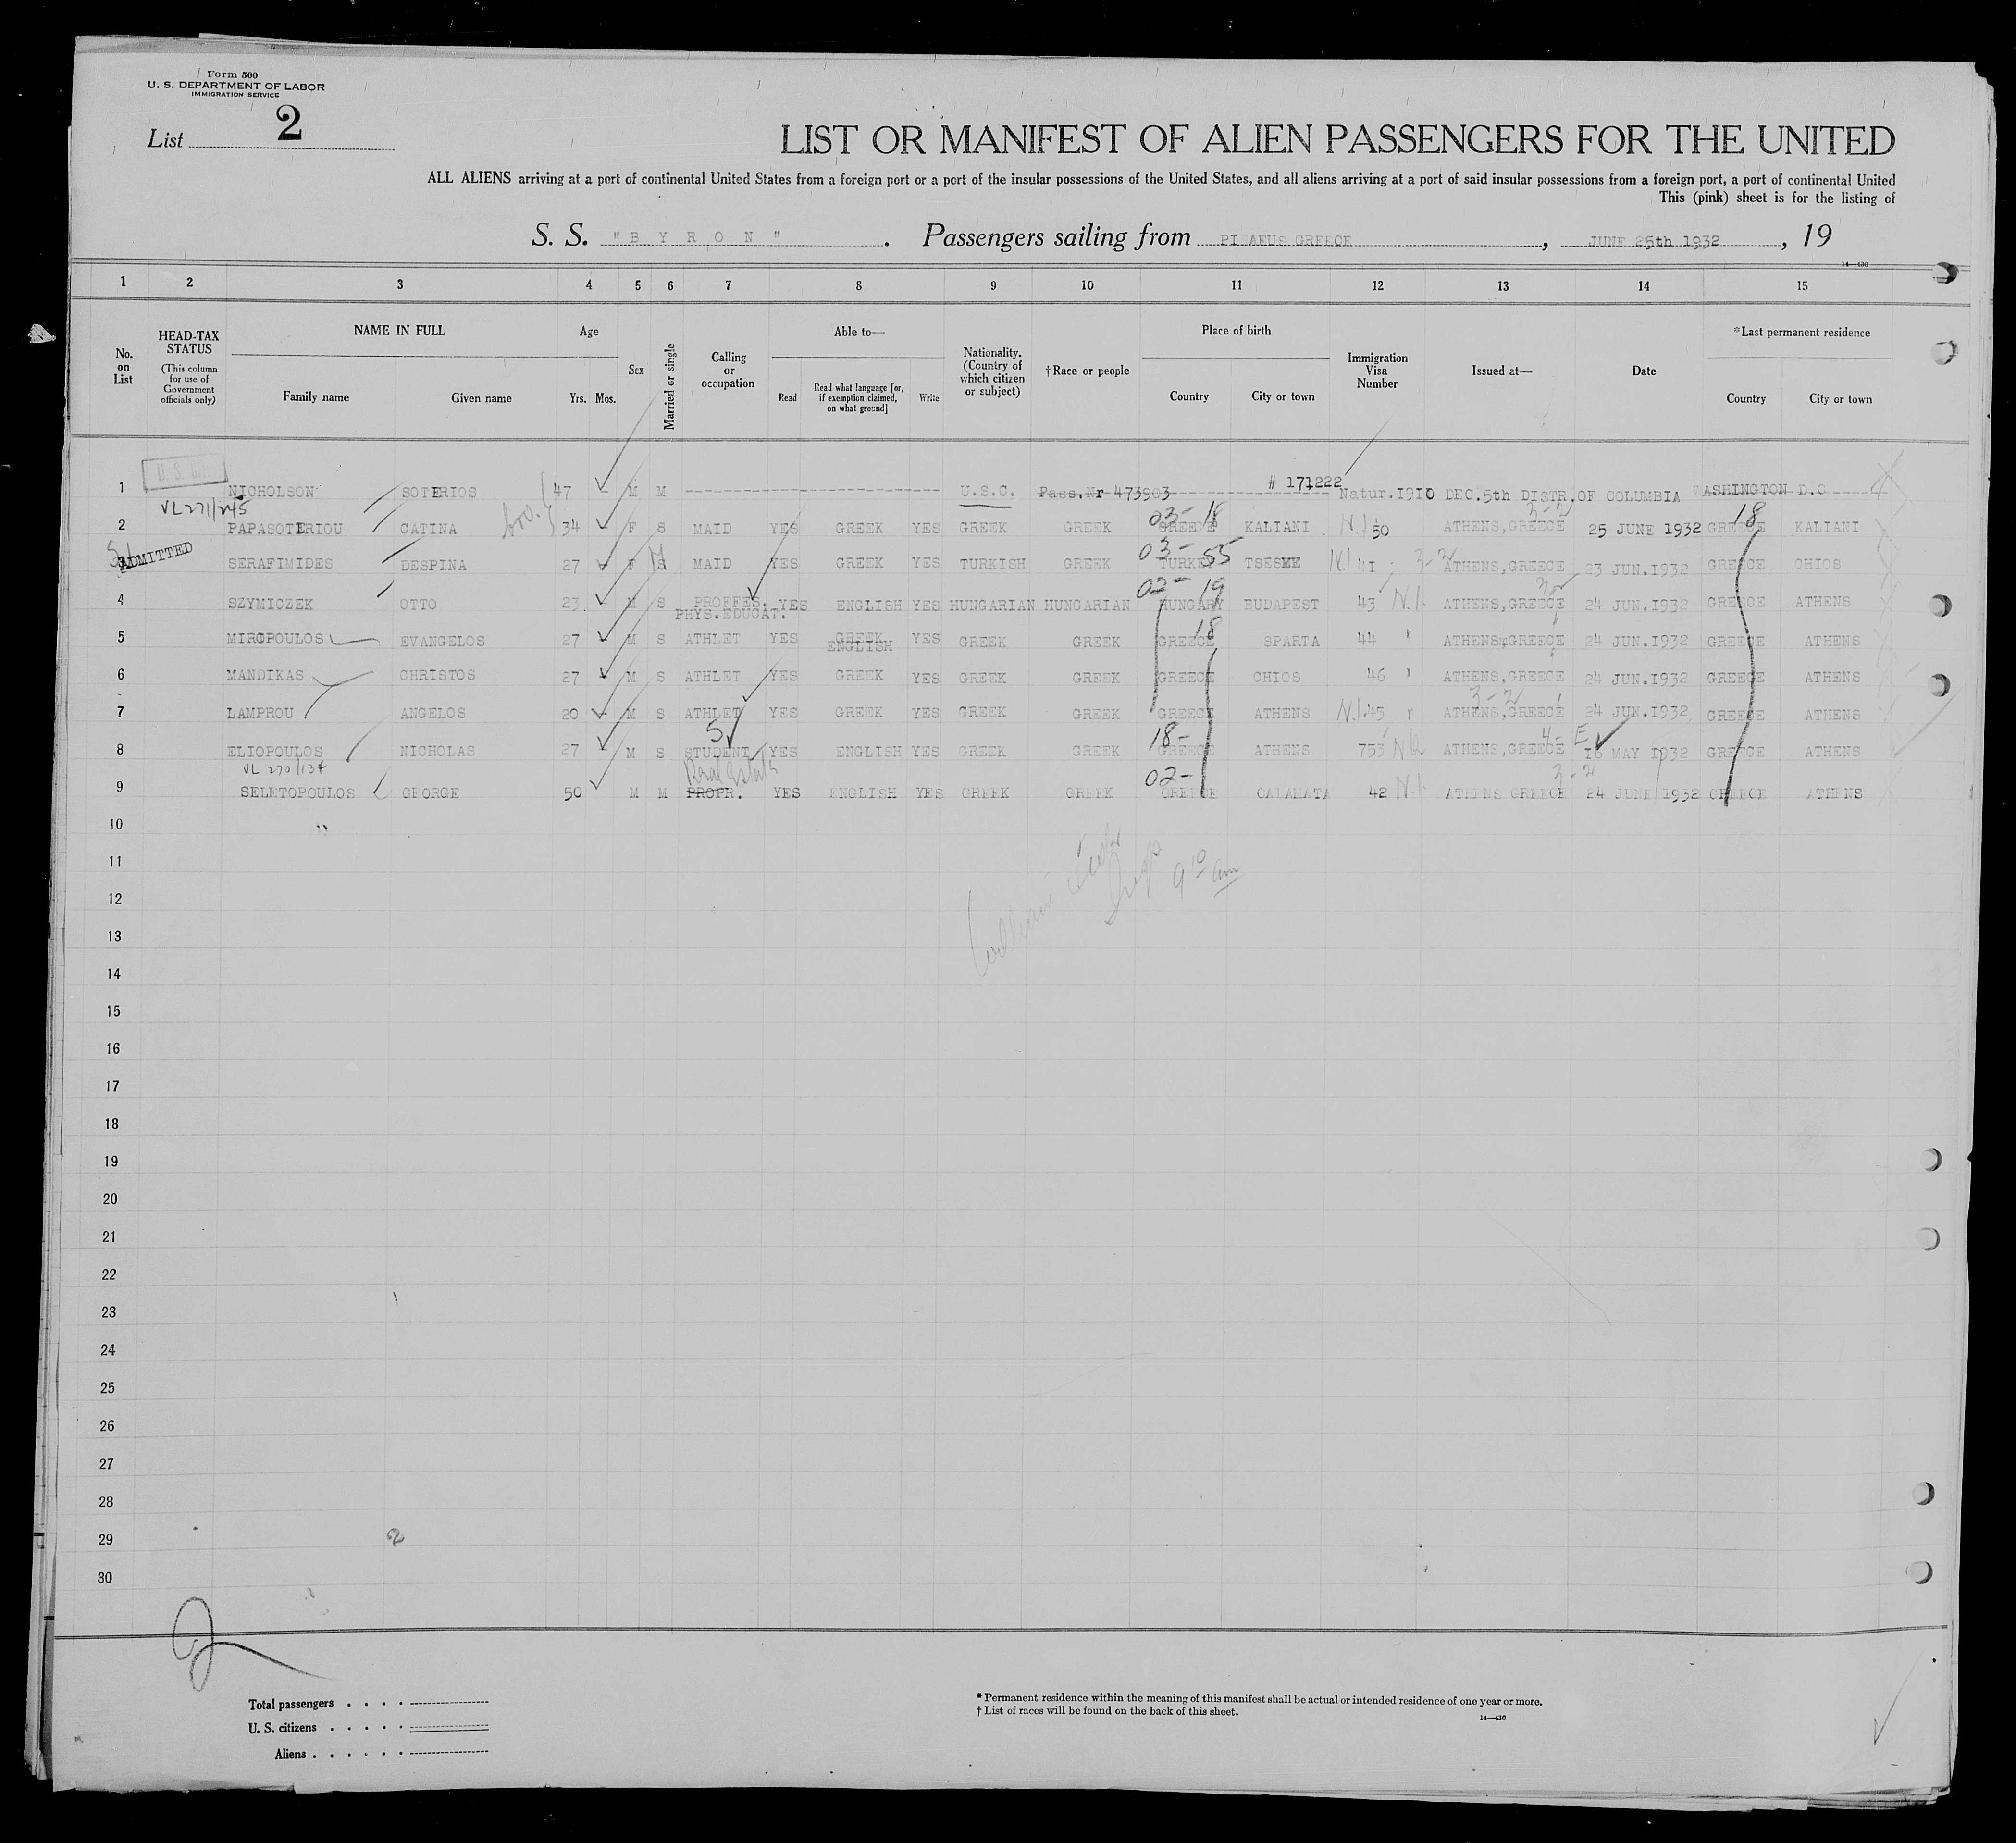 Form 500
U. S. DEPARTMENT OF LABOR
IMMIGRATION SERVICE
List 2
LIST OR MANIFEST OF ALIEN PASSENGERS FOR THE UNITED
ALL ALIENS arriving at a port of continental United States from a foreign port or a port of the insular possessions of the United States, and all aliens arriving at a port of said insular possessions from a foreign port, a port of continental United
This (pink) sheet is for the listing of
S. S. "BYRON". Passengers sailing from PIRAEUS GREECE, JUNE 25th 1932, 19
14—430
1 2 3 4 5 6 7 8 9 10 11 12 13 14 15
No. on List
HEAD-TAX STATUS (This column for use of Government officials only)
NAME IN FULL Family name Given name
Age Yrs. Mos.
Sex
Married or single
Calling or occupation
Able to— Read Read what language [or, if exemption claimed, on what ground] Write
Nationality. (Country of which citizen or subject)
†Race or people
Place of birth Country City or town
Immigration Visa Number
Issued at—
Date
*Last permanent residence Country City or town
1 NICHOLSON SOTERIOS 47 M M U.S.C. Pass.Nr 473903 # 171222 Natur.1910 DEC.5th DISTR.OF COLUMBIA WASHINGTON D.C
VL271/245
2 PAPASOTERIOU CATINA 34 F S MAID YES GREEK YES GREEK GREEK 03- 18 GREECE KALIANI N.I 50 3-2 ATHENS,GREECE 25 JUNE 1932 18 GREECE KALIANI
ADMITTED
3 SERAFIMIDES DESPINA 27 F S MAID YES GREEK YES TURKISH GREEK 03- 55 TURKEY TSESME N.I 41 3-2 ATHENS,GREECE 23 JUN.1932 GREECE CHIOS
4 SZYMICZEK OTTO 23 M S PROFFES. PHYS.EDUCAT. YES ENGLISH YES HUNGARIAN HUNGARIAN 02- 19 HUNGARY BUDAPEST 43 N.I. ATHENS,GREECE 24 JUN.1932 GREECE ATHENS
5 MIROPOULOS EVANGELOS 27 M S ATHLET YES GREEK ENGLISH YES GREEK GREEK 18 GREECE SPARTA 44 " ATHENS,GREECE 24 JUN.1932 GREECE ATHENS
6 MANDIKAS CHRISTOS 27 M S ATHLET YES GREEK YES GREEK GREEK GREECE CHIOS 46 " ATHENS,GREECE 24 JUN.1932 GREECE ATHENS
7 LAMPROU ANGELOS 20 M S ATHLET YES GREEK YES GREEK GREEK GREECE ATHENS N.I.45 " 3-2 ATHENS,GREECE 24 JUN.1932 GREECE ATHENS
8 ELIOPOULOS NICHOLAS 27 M S 5 STUDENT YES ENGLISH YES GREEK GREEK 18- GREECE ATHENS 753 NQ 4-E ATHENS,GREECE 16 MAY 1932 GREECE ATHENS
VL 270/134
9 SELETOPOULOS GEORGE 50 M M Real Estate PROPR. YES ENGLISH YES GREEK GREEK 02- GREECE CALAMATA 42 N.I 3-2 ATHENS GREECE 24 JUNE 1932 GREECE ATHENS
10
11
9 10 am
12
13
14
15
16
17
18
19
20
21
22
23
24
25
26
27
28
29 2
30
Total passengers
U. S. citizens
Aliens
* Permanent residence within the meaning of this manifest shall be actual or intended residence of one year or more.
† List of races will be found on the back of this sheet.
14—430